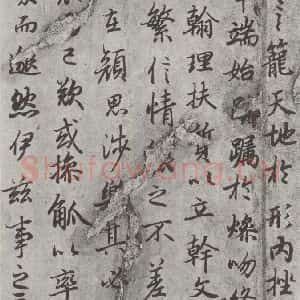 籠天地於形內挫
端始躑躅於燥吻終
翰理扶質以立幹文
繁信情貌之不差
在顏思涉樂其必
已歎或操觚以率
而邈然伊茲事之
Shufawang.cn